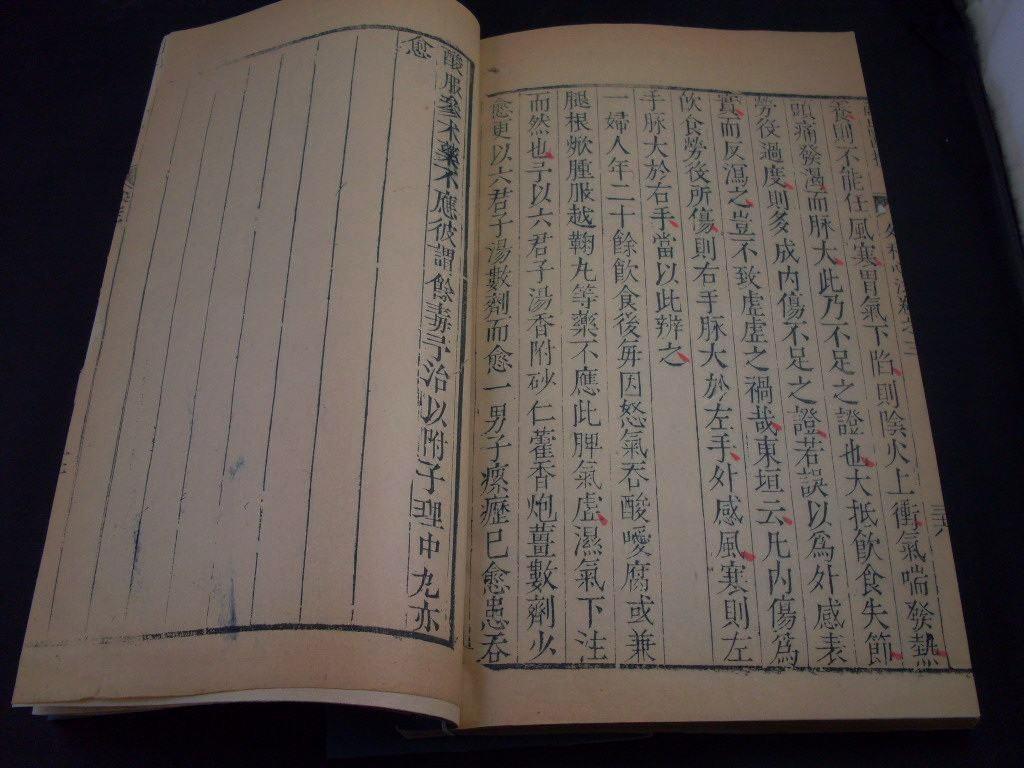 養則不能任風寒胃氣下陷則陰火上衝氣喘發熱
頭痛發渴而脉大此乃不足之證也大抵飲食失節
勞役過度則多成内傷不足之證若誤以爲外感表
實而反瀉之豈不致虛虛之禍哉東垣云凡内傷爲
飲食勞役所傷則右手脉大於左手外感風寒則左
手脉大於右手當以此辨之
一婦人年二十餘飲食後每因怒氣吞酸噯腐或兼
腿根㾂腫服越鞠丸等藥不應此脾氣虛濕氣下注
而然也予以六君子湯香附砂仁藿香炮薑數劑少
愈更以六君子湯數劑而愈一男子瘰癧已愈患吞
酸服參术藥不應彼謂餘毒予治以附子理中丸亦
愈